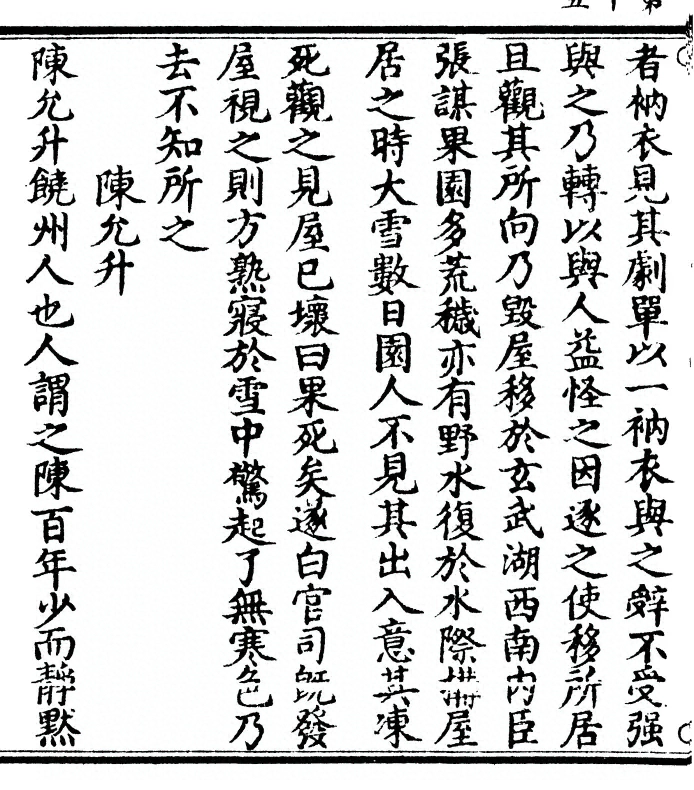 第十五
者衲衣見其劇單以一衲衣與之辤不受强
與之乃轉以與人益怪之因逐之使移所居
且觀其所向乃毁屋移於玄武湖西南内臣
張謀果園多荒穢亦有野水復於水際構屋
居之時大雪數日園人不見其出入意其凍
死觀之見屋已壞曰果死矣遂白官司既發
屋視之則方熟寢於雪中驚起了無寒色乃
去不知所之
陳允升
陳允升饒州人也人謂之陳百年少而靜黙